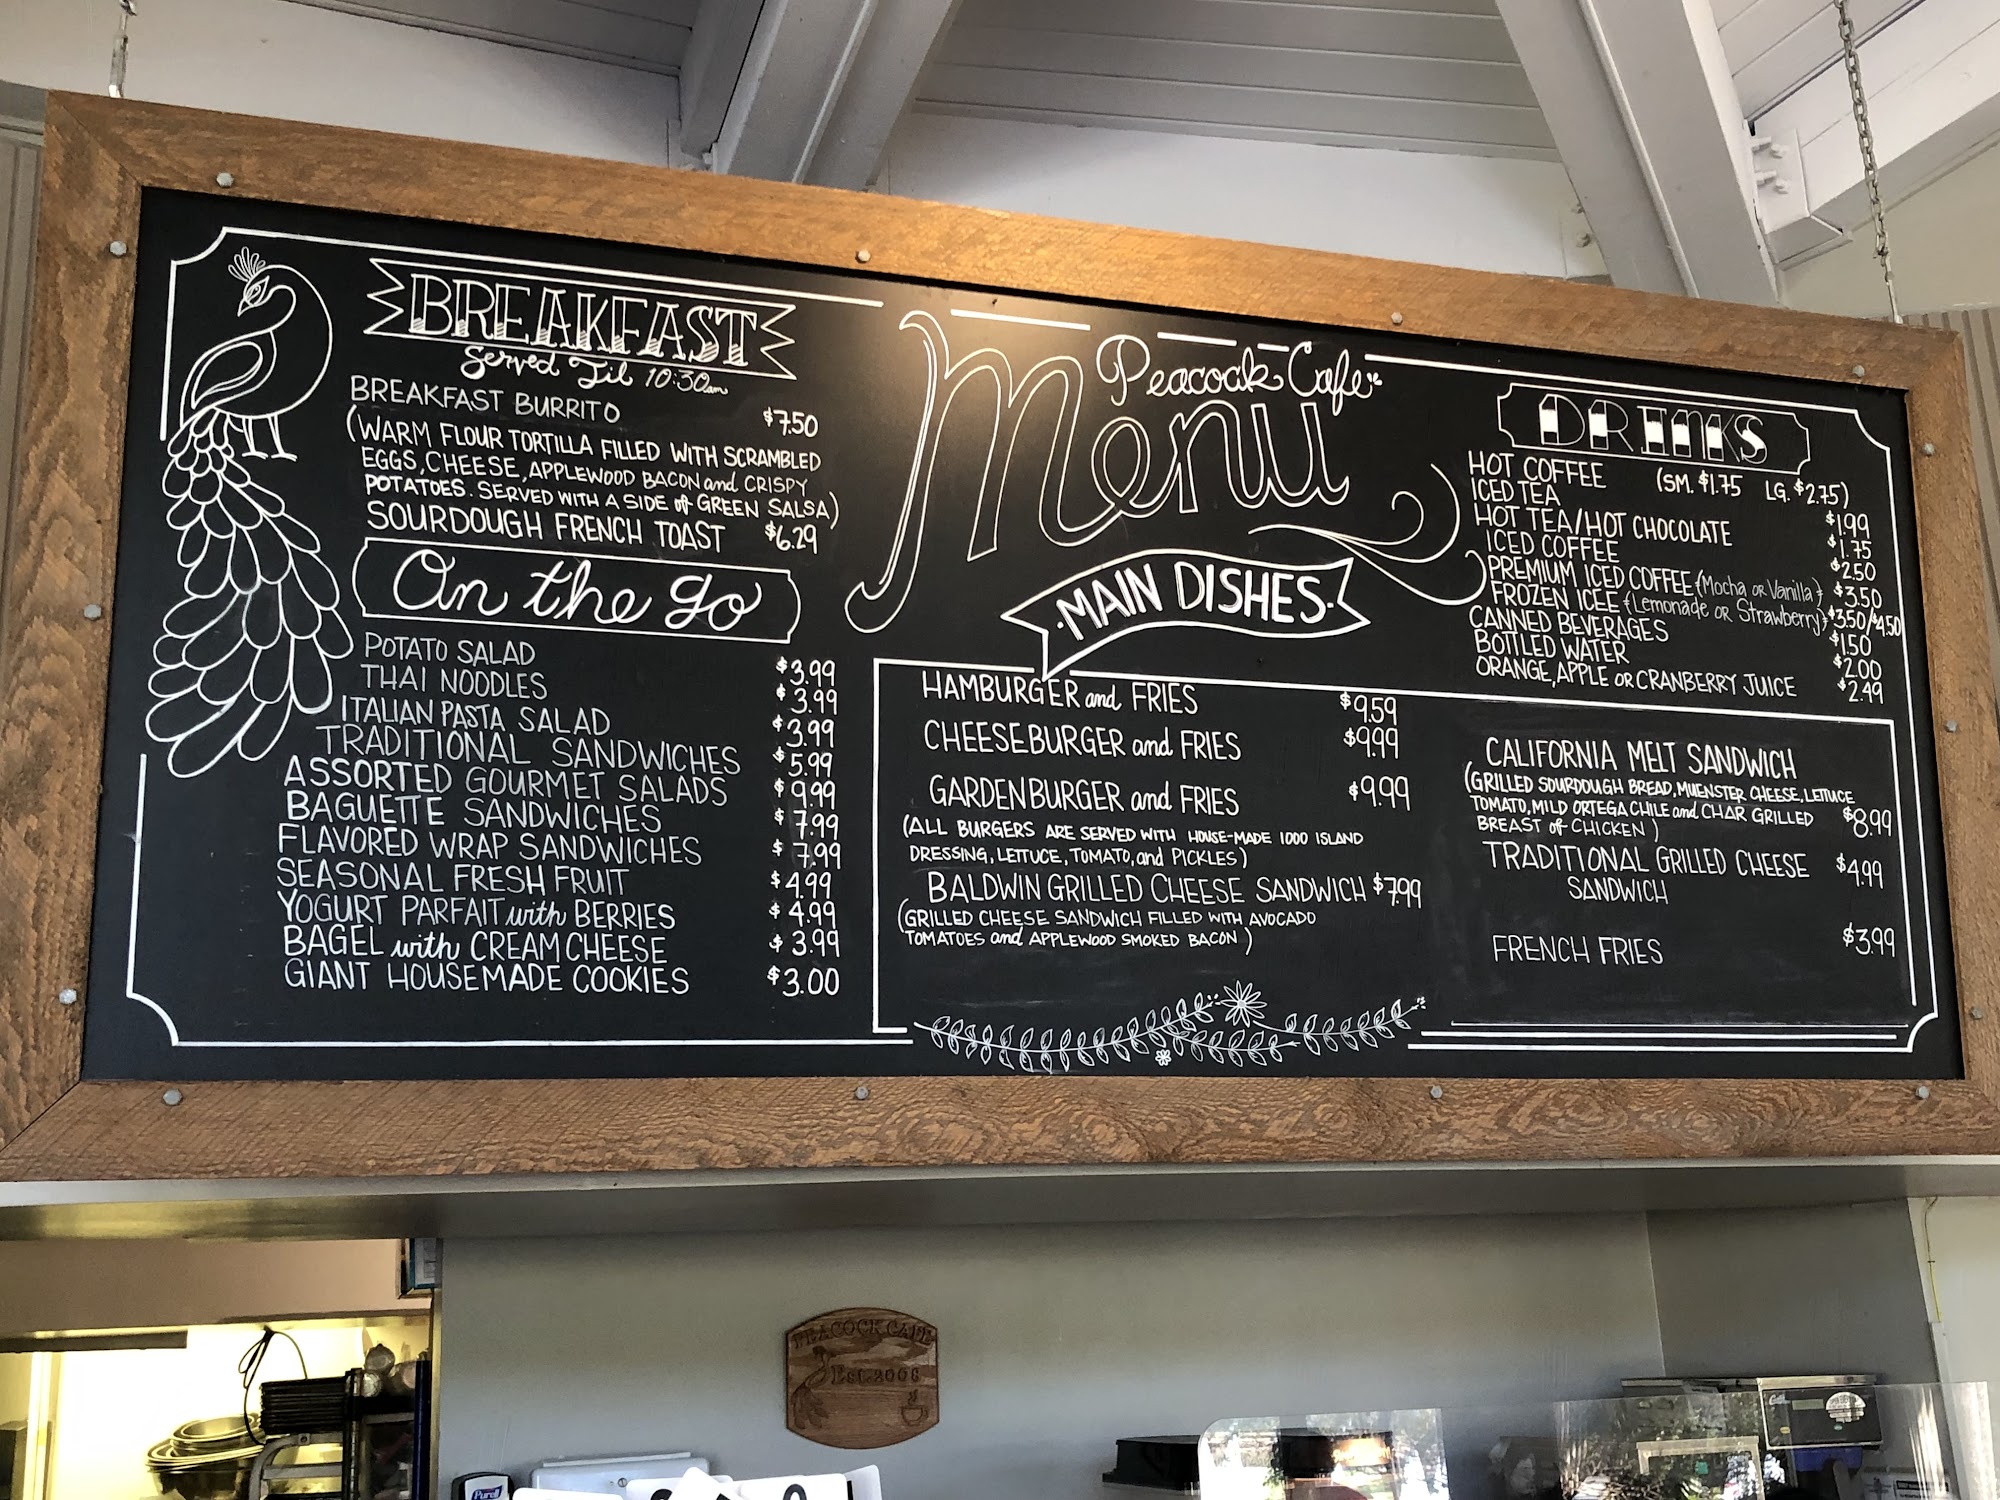 BREAKFAST
Served Til 10:30am
BREAKFAST BURRITO $7.50
(WARM FLOUR TORTILLA FILLED WITH SCRAMBLED
EGGS, CHEESE, APPLEWOOD BACON and CRISPY
POTATOES. SERVED WITH A SIDE of GREEN SALSA)
SOURDOUGH FRENCH TOAST $6.29
On the go
POTATO SALAD $3.99
THAI NOODLES $3.99
ITALIAN PASTA SALAD $3.99
TRADITIONAL SANDWICHES $5.99
ASSORTED GOURMET SALADS $9.99
BAGUETTE SANDWICHES $7.99
FLAVORED WRAP SANDWICHES $7.99
SEASONAL FRESH FRUIT $4.99
YOGURT PARFAIT with BERRIES $4.99
BAGEL with CREAM CHEESE $3.99
GIANT HOUSEMADE COOKIES $3.00
Peacock Cafe
Menu
MAIN DISHES
HAMBURGER and FRIES $9.59
CHEESEBURGER and FRIES $9.99
GARDENBURGER and FRIES $9.99
(ALL BURGERS ARE SERVED WITH HOUSE-MADE 1000 ISLAND
DRESSING, LETTUCE, TOMATO, and PICKLES)
BALDWIN GRILLED CHEESE SANDWICH $7.99
(GRILLED CHEESE SANDWICH FILLED WITH AVOCADO
TOMATOES and APPLEWOOD SMOKED BACON)
DRINKS
HOT COFFEE (SM. $1.75 LG. $2.75)
ICED TEA $1.99
HOT TEA/HOT CHOCOLATE $1.75
ICED COFFEE $2.50
PREMIUM ICED COFFEE {Mocha or Vanilla} $3.50
FROZEN ICEE {Lemonade or Strawberry} $3.50/$4.50
CANNED BEVERAGES $1.50
BOTTLED WATER $2.00
ORANGE, APPLE OR CRANBERRY JUICE $2.49
CALIFORNIA MELT SANDWICH
(GRILLED SOURDOUGH BREAD, MUENSTER CHEESE, LETTUCE
TOMATO, MILD ORTEGA CHILE and CHAR GRILLED $8.99
BREAST of CHICKEN)
TRADITIONAL GRILLED CHEESE $4.99
SANDWICH
FRENCH FRIES $3.99
PEACOCK CAFE
EST. 2006
Purell